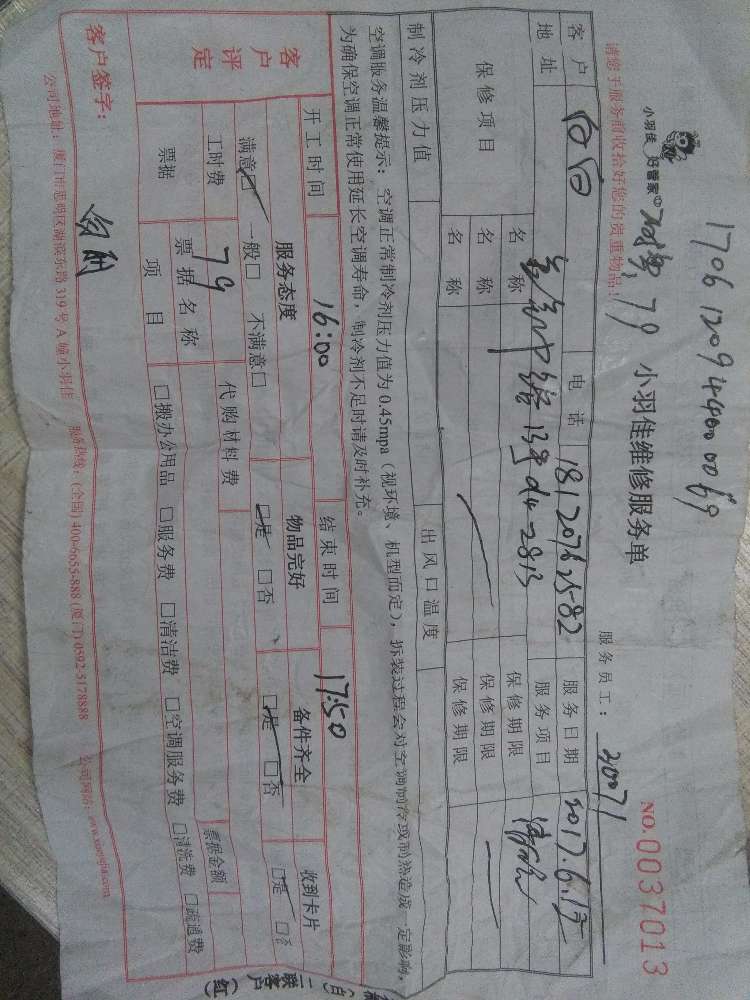 170612094400069
小羽佳 好管家
79
小羽佳维修服务单
服务员工：
NO.0037013
请您于服务前收拾好您的贵重物品！
客户
电话 18120762582 服务日期 2017.6.13
地址
13号 服务项目
保修项目 名称 保修期限
名称 保修期限
名称 保修期限
制冷剂压力值 出风口温度
空调服务温馨提示：空调正常制冷剂压力值为0.45mpa（视环境、机型而定），拆装过程会对空调制冷或制热造成一定影响，
为确保空调正常使用延长空调寿命，制冷剂不足时请及时补充。
开工时间 16:00 结束时间 17:50
客户评定 服务态度 物品完好 备件齐全 收到卡片
满意☑ 一般□ 不满意□ ☑是 □否 ☑是 □否 ☑是 □否
工时费 79 代购材料费
票据 票据名称 票据金额
项目 □搬办公用品 □服务费 □清洁费 □空调服务费 □清洗费 □疏通费
客户签字：
公司地址：厦门市思明区湖滨东路319号A幢小羽佳 服务热线：(全国)400-6655-888 (厦门)0592-5178888 公司网站：www.xiaoyujia.com
(白) 二联客户 (红)